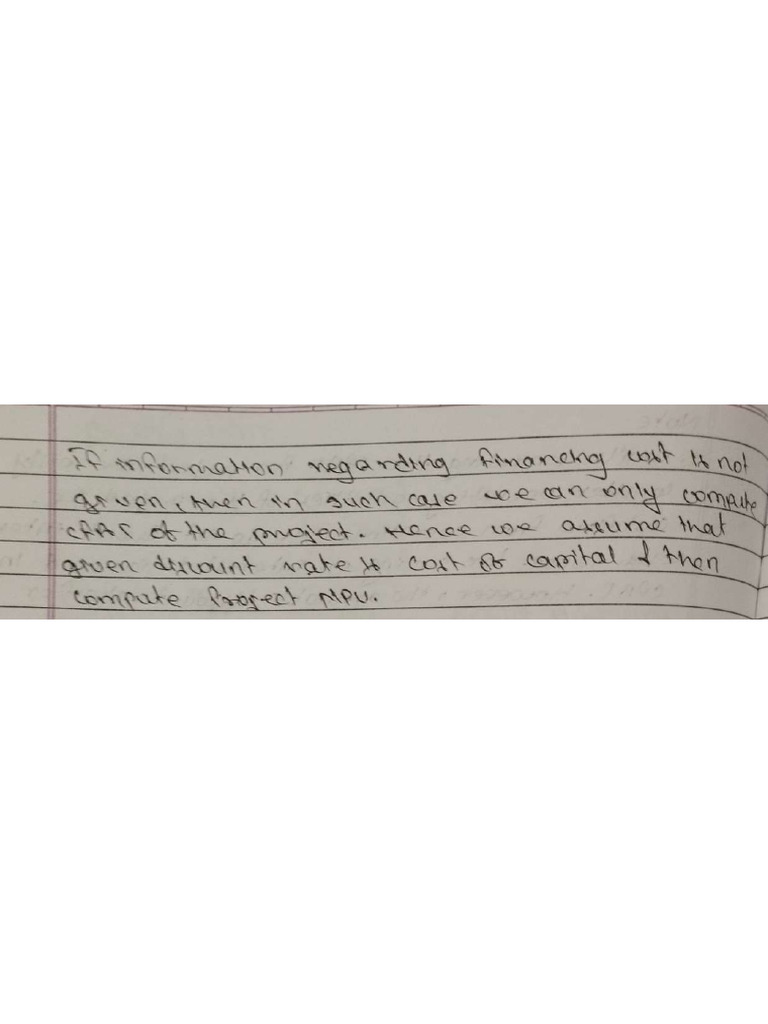 If information regarding financing cost is not
given, then in such case we can only compute
CFAT of the project. Hence we assume that
given discount rate is cost of capital & then
compute Project NPV.